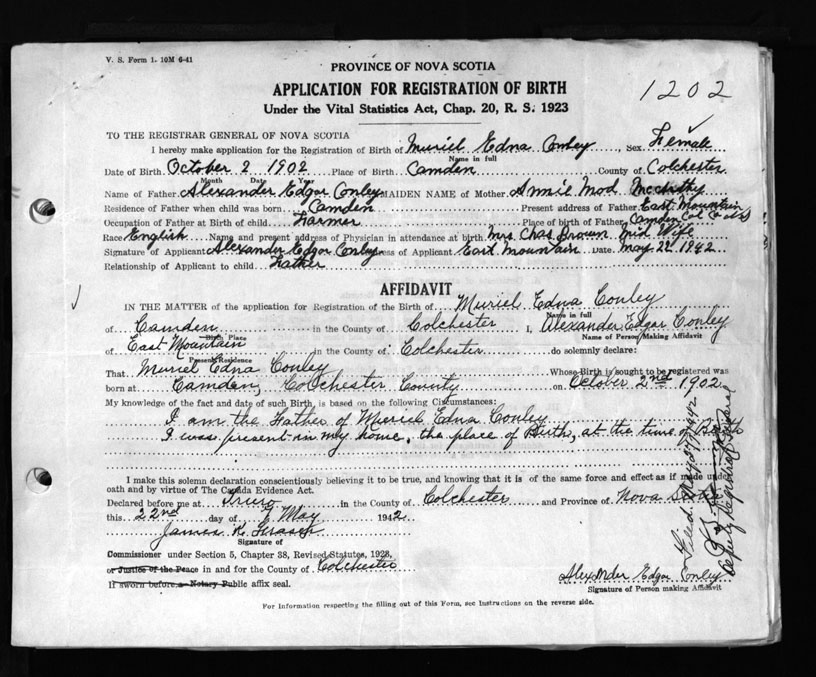 V. S. Form 1. 10M 6-41
PROVINCE OF NOVA SCOTIA
APPLICATION FOR REGISTRATION OF BIRTH
1202
Under the Vital Statistics Act, Chap. 20, R. S. 1923
TO THE REGISTRAR GENERAL OF NOVA SCOTIA
I hereby make application for the Registration of Birth of Muriel Edna Conley, Sex Female
Name in full
Date of Birth October 2 1902 Place of Birth Camden County of Colchester
Month Date Year
Name of Father Alexander Edgar Conley MAIDEN NAME of Mother Annie Mod
Residence of Father when child was born Camden Present address of Father East Mountain
Occupation of Father at Birth of child Farmer Place of birth of Father Camden Col Co NS
Race English Name and present address of Physician in attendance at birth Mrs Chas Brown Mid Wife
Signature of Applicant Alexander Edgar Conley Address of Applicant East Mountain Date May 22 1942
Relationship of Applicant to child Father
AFFIDAVIT
IN THE MATTER of the application for Registration of the Birth of Muriel Edna Conley
Name in full
of Camden in the County of Colchester I, Alexander Edgar Conley
Birth Place Name of Person Making Affidavit
of East Mountain in the County of Colchester do solemnly declare:
Present Residence
That Muriel Edna Conley Whose Birth is sought to be registered was
born at Camden, Colchester County on October 2nd 1902
My knowledge of the fact and date of such Birth, is based on the following Circumstances:
I am the Father of Muriel Edna Conley
I was present in my home, the place of Birth, at the time of Birth
I make this solemn declaration conscientiously believing it to be true, and knowing that it is of the same force and effect as if made under
oath and by virtue of The Canada Evidence Act.
Declared before me at Truro in the County of Colchester and Province of Nova Scotia
this 22nd day of May 1942
James K Fraser
Signature of
Commissioner under Section 5, Chapter 38, Revised Statutes, 1923,
or Justice of the Peace in and for the County of Colchester
If sworn before a Notary Public affix seal.
Alexander Edgar Conley
Signature of Person making Affidavit
For Information respecting the filling out of this Form, see Instructions on the reverse side.
Filed May 27/1942
Deputy Registrar General